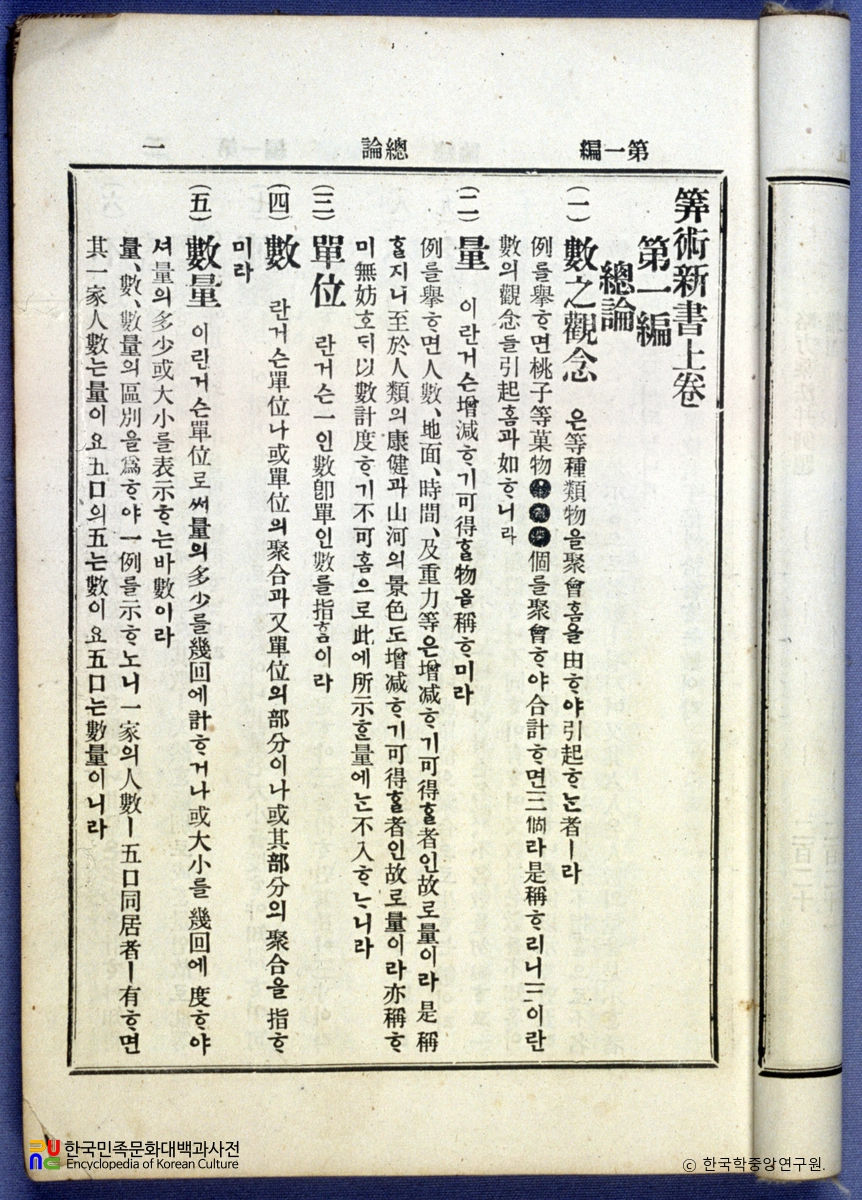 第一編
總論
一
筭術新書上卷
第一編
總論
(一) 數之觀念 은等種類物을聚會홈을由ᄒᆞ야引起ᄒᆞᄂᆞᆫ者ㅣ라
例를擧ᄒᆞ면桃子等菓物●●●個를聚會ᄒᆞ야合計ᄒᆞ면三個라是稱ᄒᆞ리니三이란
數의觀念들引起홈과如ᄒᆞ니라
(二) 量 이란거슨增減ᄒᆞ기可得ᄒᆞᆯ物을稱ᄒᆞ미라
例를擧ᄒᆞ면人數、地面、時間、及重力等은增减ᄒᆞ기可得ᄒᆞᆯ者인故로量이라是稱
ᄒᆞᆯ지니至於人類의康健과山河의景色도增减ᄒᆞ기可得ᄒᆞᆯ者인故로量이라亦稱ᄒᆞ
미無妨호ᄃᆡ以數計度ᄒᆞ기不可홈으로此에所示ᄒᆞᆫ量에ᄂᆞᆫ不入ᄒᆞᄂᆞ니라
(三) 單位 란거슨一인數卽單인數를指ᄒᆞᆷ이라
(四) 數 란거슨單位나或單位의聚合과又單位의部分이나或其部分의聚合을指ᄒᆞ
미라
(五) 數量 이란거슨單位로써量의多少를幾回에計ᄒᆞ거나或大小를幾回에度ᄒᆞ야
셔量의多少或大小를表示ᄒᆞᄂᆞᆫ바數이라
量、數、數量의區別을爲ᄒᆞ야一例를示ᄒᆞ노니一家의人數ㅣ五口同居者ㅣ有ᄒᆞ면
其一家人數는量이요五口의五는數이요五口는數量이니라
한국민족문화대백과사전
Encyclopedia of Korean Culture
ⓒ 한국학중앙연구원.